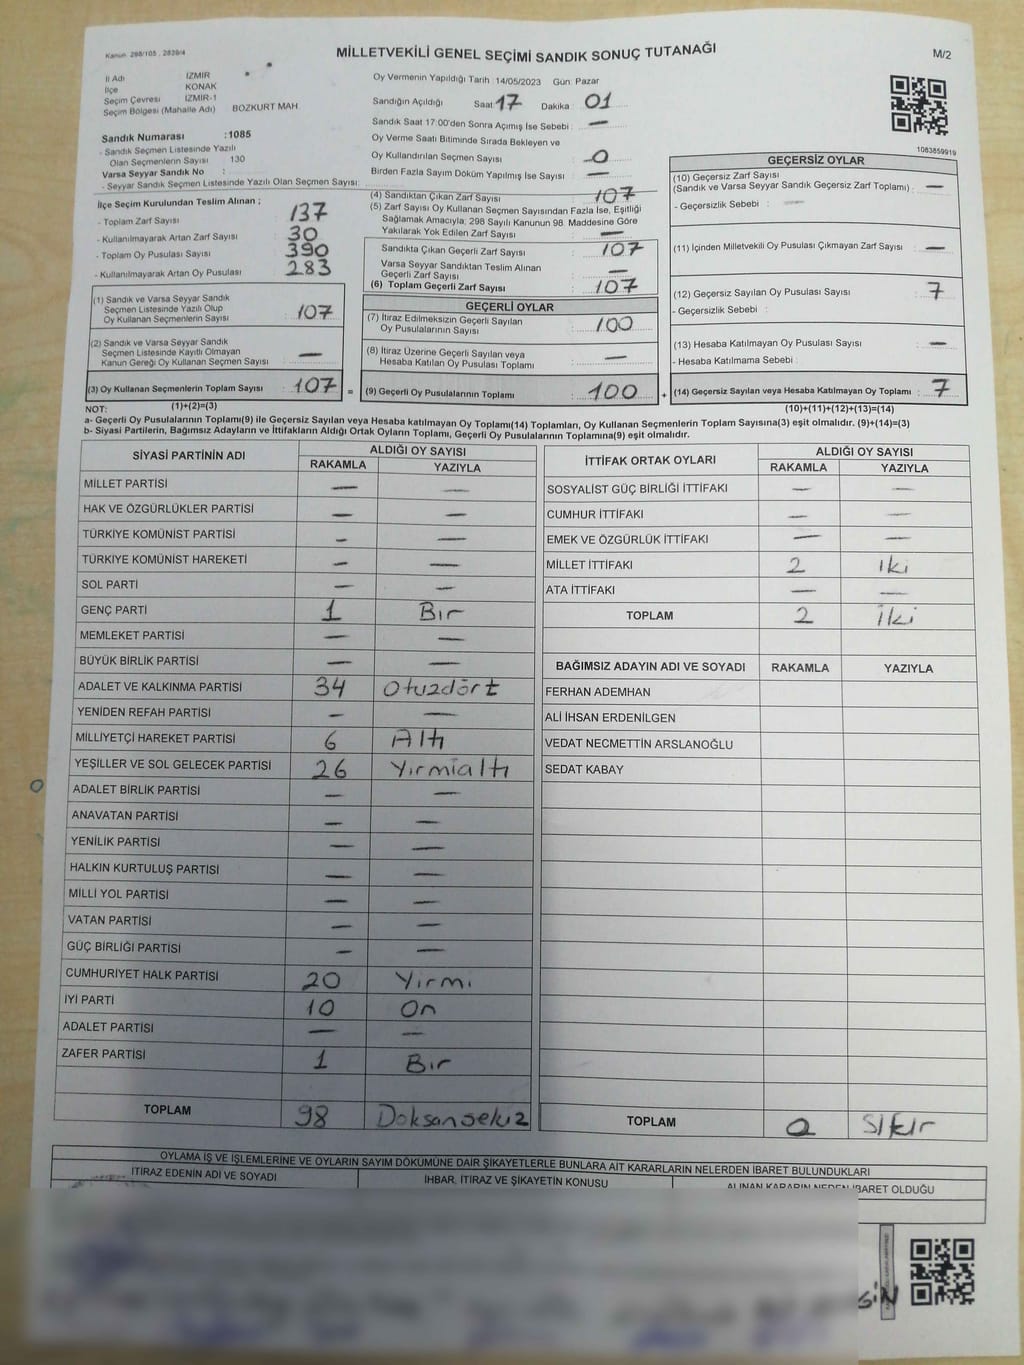 Kanun: 298/105 , 2839/4
MİLLETVEKİLİ GENEL SEÇİMİ SANDIK SONUÇ TUTANAĞI
M/2
İl Adı İZMİR
İlçe KONAK
Seçim Çevresi İZMİR-1
Seçim Bölgesi (Mahalle Adı) BOZKURT MAH.
Sandık Numarası :1085
- Sandık Seçmen Listesinde Yazılı
Olan Seçmenlerin Sayısı : 130
Varsa Seyyar Sandık No :
- Seyyar Sandık Seçmen Listesinde Yazılı Olan Seçmen Sayısı:
Oy Vermenin Yapıldığı Tarih :14/05/2023 Gün: Pazar
Sandığın Açıldığı Saat 17 Dakika 01
Sandık Saat 17:00'den Sonra Açımış İse Sebebi : —
Oy Verme Saati Bitiminde Sırada Bekleyen ve
Oy Kullandırılan Seçmen Sayısı : 0
Birden Fazla Sayım Döküm Yapılmış İse Sayısı : —
1083859919
İlçe Seçim Kurulundan Teslim Alınan ;
- Toplam Zarf Sayısı : 137
- Kullanılmayarak Artan Zarf Sayısı : 30
- Toplam Oy Pusulası Sayısı : 390
- Kullanılmayarak Artan Oy Pusulası : 283
(1) Sandık ve Varsa Seyyar Sandık
Seçmen Listesinde Yazılı Olup
Oy Kullanan Seçmenlerin Sayısı : 107
(2) Sandık ve Varsa Seyyar Sandık
Seçmen Listesinde Kayıtlı Olmayan
Kanun Gereği Oy Kullanan Seçmen Sayısı : —
(3) Oy Kullanan Seçmenlerin Toplam Sayısı : 107 =
(1)+(2)=(3)
(4) Sandıktan Çıkan Zarf Sayısı : 107
(5) Zarf Sayısı Oy Kullanan Seçmen Sayısından Fazla İse, Eşitliği
Sağlamak Amacıyla; 298 Sayılı Kanunun 98. Maddesine Göre
Yakılarak Yok Edilen Zarf Sayısı : —
Sandıkta Çıkan Geçerli Zarf Sayısı : 107
Varsa Seyyar Sandıktan Teslim Alınan
Geçerli Zarf Sayısı : —
(6) Toplam Geçerli Zarf Sayısı : 107
GEÇERLİ OYLAR
(7) İtiraz Edilmeksizin Geçerli Sayılan
Oy Pusulalarının Sayısı : 100
(8) İtiraz Üzerine Geçerli Sayılan veya
Hesaba Katılan Oy Pusulası Toplamı : —
(9) Geçerli Oy Pusulalarının Toplamı : 100 +
GEÇERSİZ OYLAR
(10) Geçersiz Zarf Sayısı
(Sandık ve Varsa Seyyar Sandık Geçersiz Zarf Toplamı) : —
- Geçersizlik Sebebi : —
(11) İçinden Milletvekili Oy Pusulası Çıkmayan Zarf Sayısı : —
(12) Geçersiz Sayılan Oy Pusulası Sayısı : 7
- Geçersizlik Sebebi :
(13) Hesaba Katılmayan Oy Pusulası Sayısı : —
- Hesaba Katılmama Sebebi :
(14) Geçersiz Sayılan veya Hesaba Katılmayan Oy Toplamı : 7
(10)+(11)+(12)+(13)=(14)
NOT:
a- Geçerli Oy Pusulaları Toplamı(9) ile Geçersiz Sayılan veya Hesaba katılmayan Oy Toplamı(14) Toplamları, Oy Kullanan Seçmenlerin Toplam Sayısına(3) eşit olmalıdır. (9)+(14)=(3)
b- Siyasi Partilerin, Bağımsız Adayların ve İttifakların Aldığı Ortak Oyların Toplamı, Geçerli Oy Pusulalarının Toplamına(9) eşit olmalıdır.
SİYASİ PARTİNİN ADI ALDIĞI OY SAYISI
RAKAMLA YAZIYLA
MİLLET PARTİSİ — —
HAK VE ÖZGÜRLÜKLER PARTİSİ — —
TÜRKİYE KOMÜNİST PARTİSİ — —
TÜRKİYE KOMÜNİST HAREKETİ — —
SOL PARTİ — —
GENÇ PARTİ 1 Bir
MEMLEKET PARTİSİ — —
BÜYÜK BİRLİK PARTİSİ — —
ADALET VE KALKINMA PARTİSİ 34 Otuzdört
YENİDEN REFAH PARTİSİ — —
MİLLİYETÇİ HAREKET PARTİSİ 6 Altı
YEŞİLLER VE SOL GELECEK PARTİSİ 26 Yirmialtı
ADALET BİRLİK PARTİSİ — —
ANAVATAN PARTİSİ — —
YENİLİK PARTİSİ — —
HALKIN KURTULUŞ PARTİSİ — —
MİLLİ YOL PARTİSİ — —
VATAN PARTİSİ — —
GÜÇ BİRLİĞİ PARTİSİ — —
CUMHURİYET HALK PARTİSİ 20 Yirmi
İYİ PARTİ 10 On
ADALET PARTİSİ — —
ZAFER PARTİSİ 1 Bir
TOPLAM 98 Doksansekiz
İTTİFAK ORTAK OYLARI ALDIĞI OY SAYISI
RAKAMLA YAZIYLA
SOSYALİST GÜÇ BİRLİĞİ İTTİFAKI — —
CUMHUR İTTİFAKI — —
EMEK VE ÖZGÜRLÜK İTTİFAKI — —
MİLLET İTTİFAKI 2 İki
ATA İTTİFAKI — —
TOPLAM 2 İki
BAĞIMSIZ ADAYIN ADI VE SOYADI RAKAMLA YAZIYLA
FERHAN ADEMHAN
ALİ İHSAN ERDENİLGEN
VEDAT NECMETTİN ARSLANOĞLU
SEDAT KABAY
TOPLAM 0 Sıfır
OYLAMA İŞ VE İŞLEMLERİNE VE OYLARIN SAYIM DÖKÜMÜNE DAİR ŞİKAYETLERLE BUNLARA AİT KARARLARIN NELERDEN İBARET BULUNDUKLARI
İTİRAZ EDENİN ADI VE SOYADI İHBAR, İTİRAZ VE ŞİKAYETİN KONUSU ALINAN KARARIN NEDEN İBARET OLDUĞU